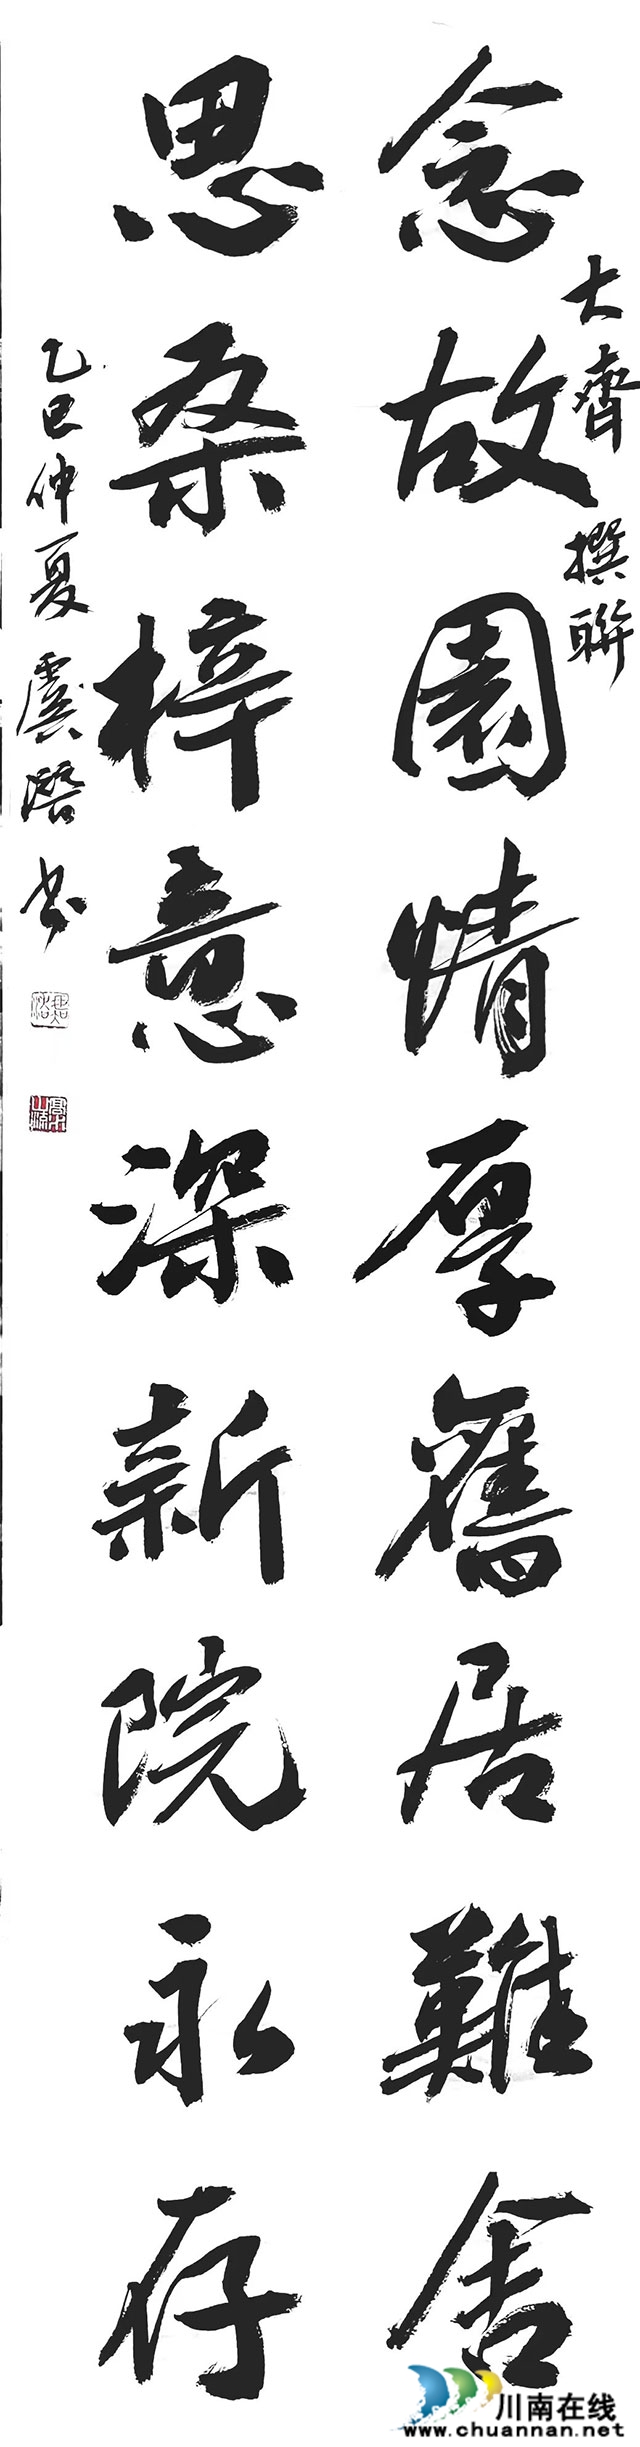 大齊撰聯
念故園情厚舊居難舍
思桑梓意深新院永存
乙巳仲夏虞谿书
川南在线
www.chuannan.net